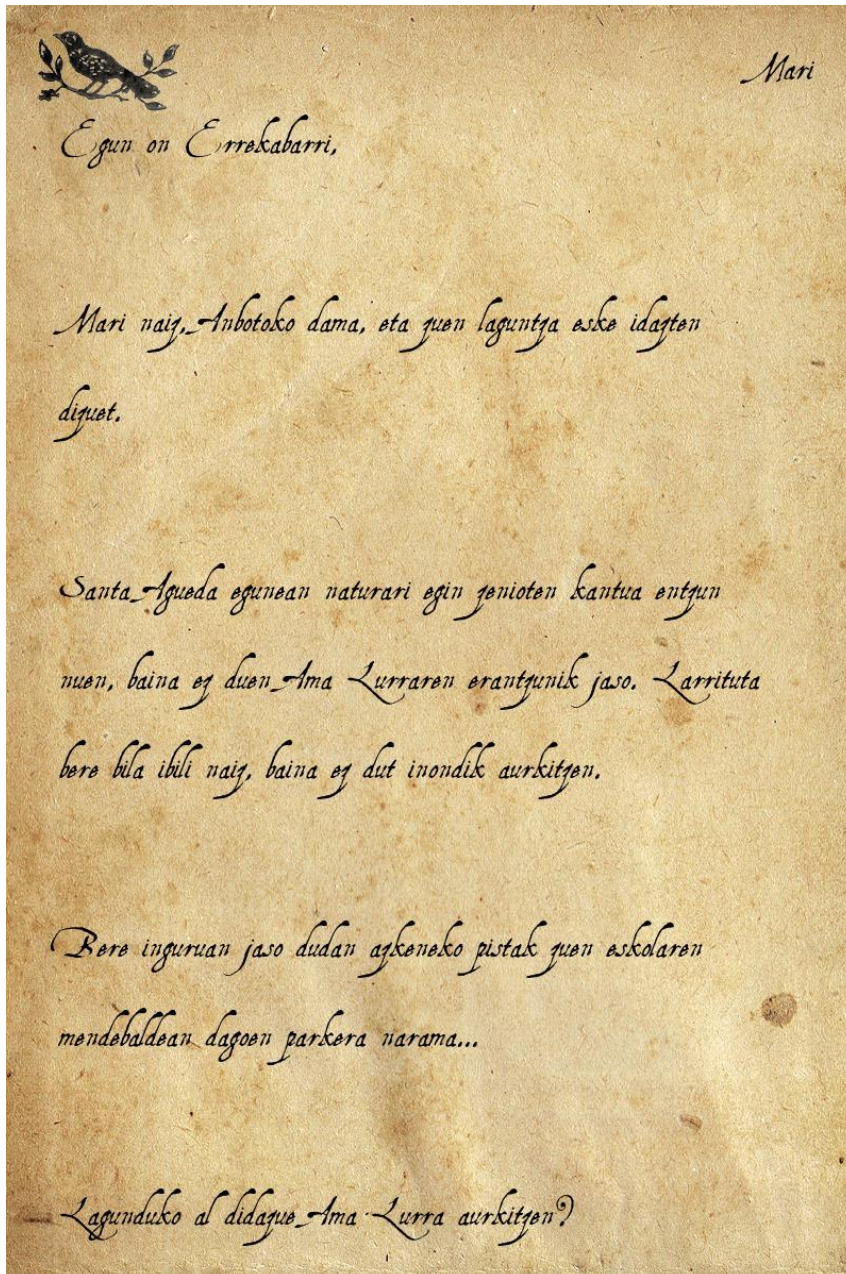 Mari
Egun on Errekabarri,
Mari naiz, Anbotoko dama, eta zuen laguntza eske idazten
dizuet.
Santa Agueda egunean naturari egin zenioten kantua entzun
nuen, baina ez duen Ama Lurraren erantzunik jaso. Larrituta
bere bila ibili naiz, baina ez dut inondik aurkitzen.
Bere inguruan jaso dudan azkeneko pistak zuen eskolaren
mendebaldean dagoen parkera narama...
Lagunduko al didazue Ama Lurra aurkitzen?